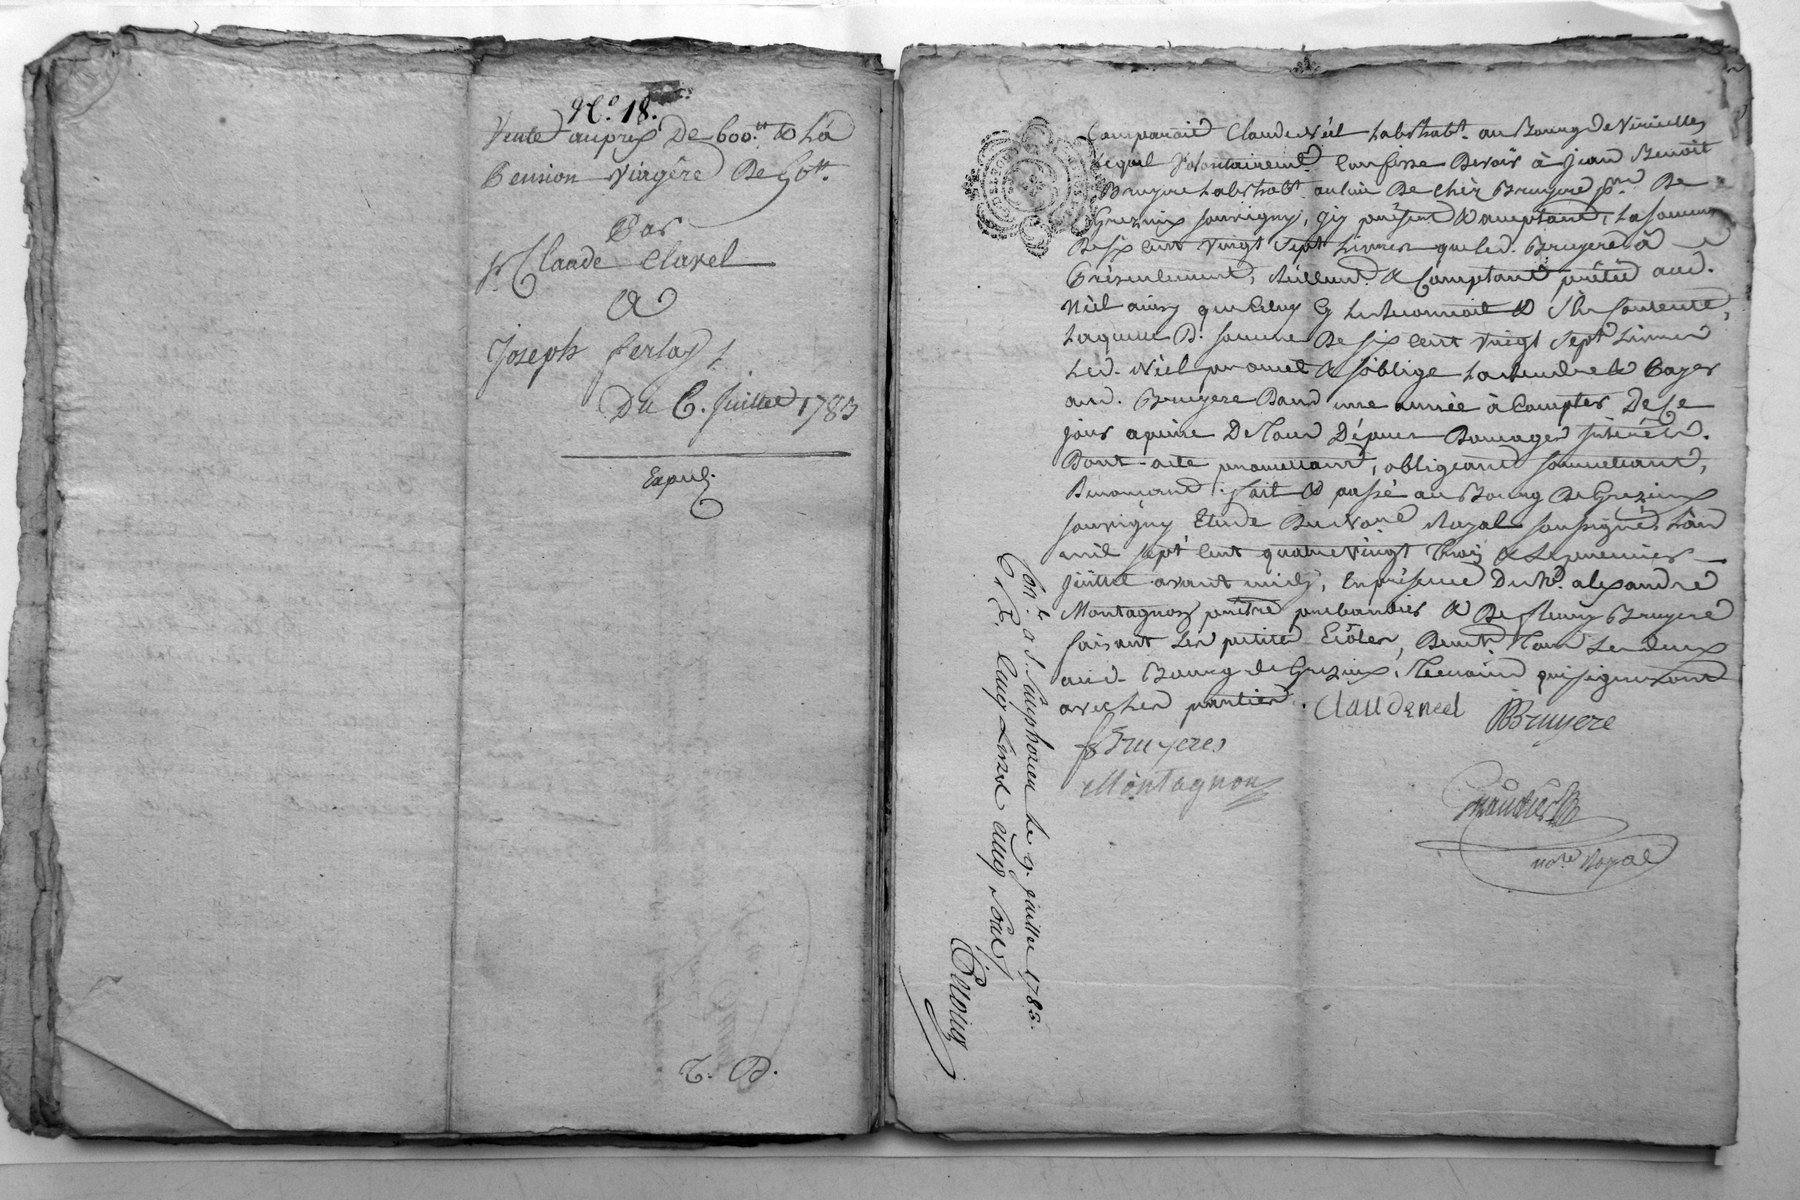 N.º 18.
Vente au prix De 600.ᵗᵗ & La
Pension Viagère De 50ᵗᵗ.
Par
Sr. Claude Clavel
A
Joseph ferlay
Du 6. Juillet 1783
Expéd.
Comparait Claude Néel habitant. au Bourg de
Lequel Volontairem.t Confesse Devoir à Jean Benoît
Bruyere habitant. au lieu De chez Bruyere p.sse De
Grezieux souvigny, icy présent & acceptant, La somme
De six cent vingt sept Livres que led. Bruyere à
Présentement, Réellem.t & Comptant prêtée aud.
Néel ainsy que celuy cy Le Reconnoit & s'en Contente,
Laquelle D. somme De six cent vingt sept Livres
Led. Néel promet & s'oblige La rendre & Payer
aud. Bruyere Dans une année à Compter De Ce
jour a peine De Tous Dépens Domages intérêts.
Dont acte promettant, obligeant soumettant,
Renonçant. fait & passé au Bourg De Grezieux
souvigny Etude Du No.re Royal soussigné, L'an
mil sept cent quatre vingt Trois & Le premier
Juillet avant midy, En présence De M.re alexandre
Montagnon prêtre prebandier & De fleury Bruyere
faisant Les petites Ecoles, Demt. Tous Les deux
aud. Bourg de Grezieux, Témoins qui signeront
avec Les parties. Claude neel JBBruyere
f Bruyeres
Montagnon
not.re Royal
Con.lé à S. Simphorien Le 9. juillet 1783.
R. Cinq Livres cinq sols